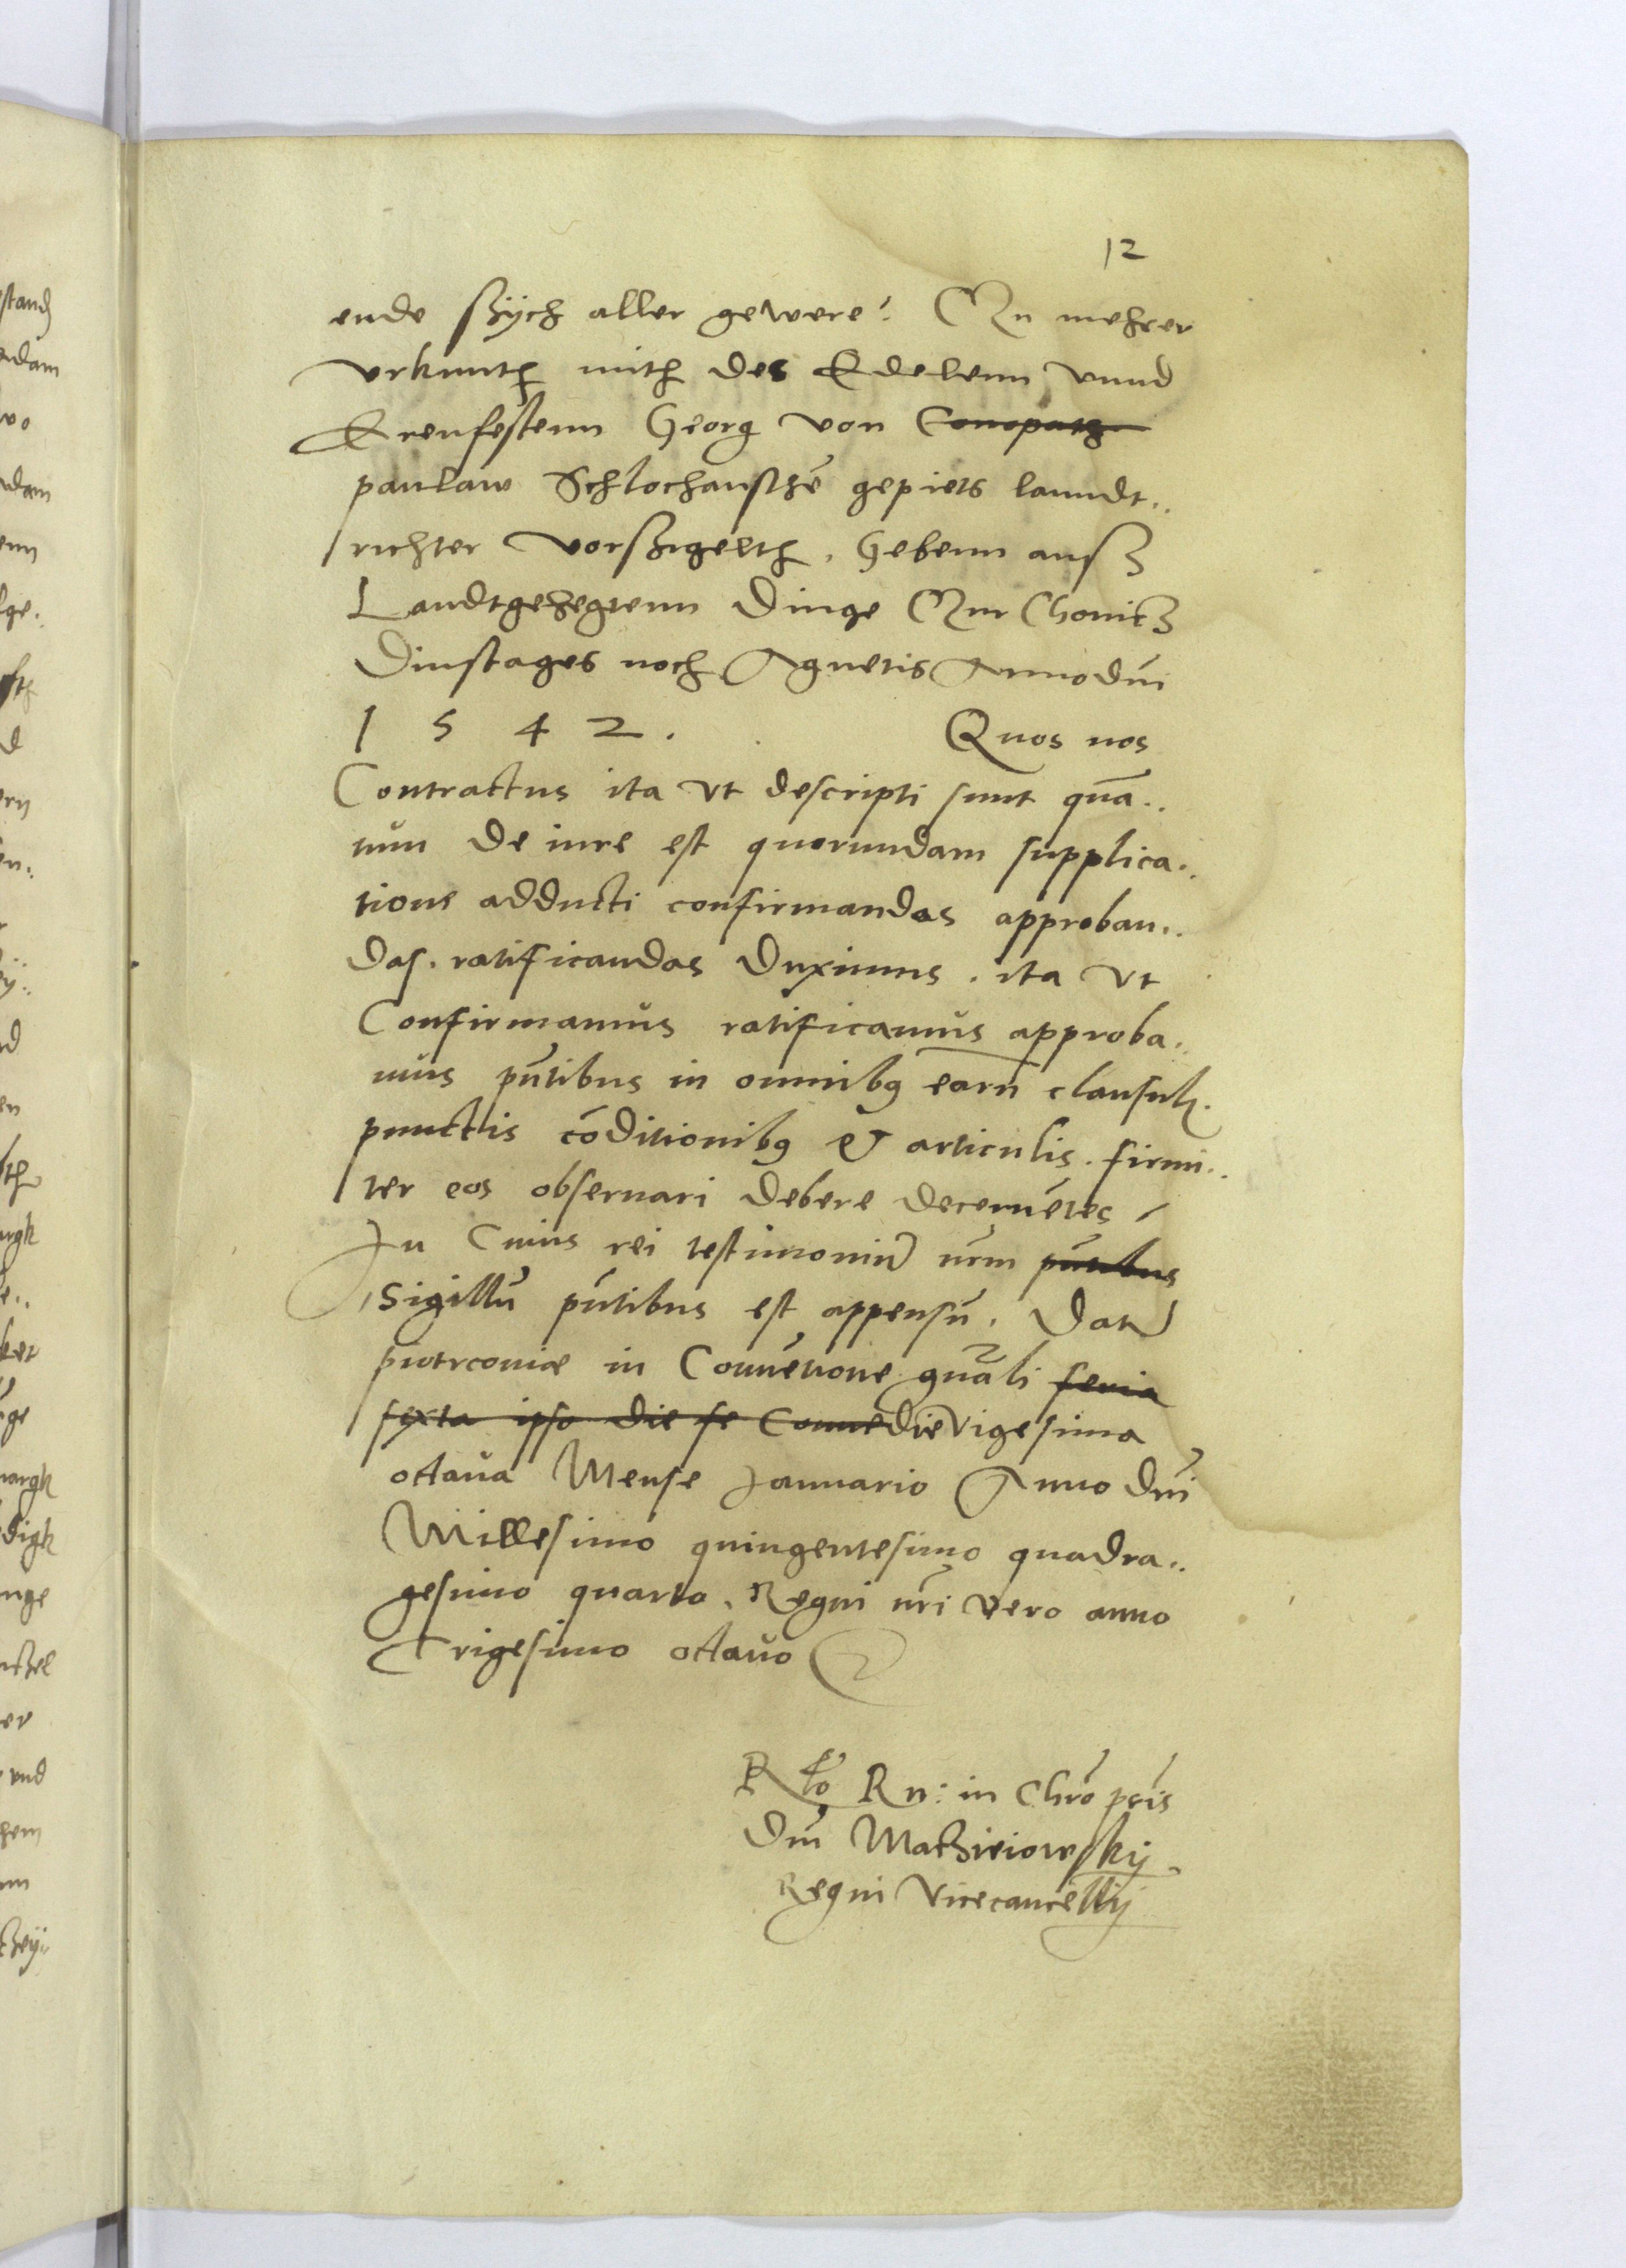 12
ende sych aller gewere. Czu mehrer
vrkunth mith des Edelenn vnnd
Erenfestenn Georg von Conopatz
pawlaw Schlochausche gepiets lanndt..
richter vorsigelth. Gebenn auss
Landtgehegtenn Dinge Czur Chonitz
Dinstages noch Agnetis Anno dni
1 5 4 2 . Quos nos
Contractus ita vt descripti sunt quan..
tum de iure est quorumdam supplica..
tione adducti confirmandos approban..
dos. ratificandos duximus. ita vt
Confirmamus ratificamus approba..
mus pntibus in omnibq earu clausul.
punctis coditionibq et articulis. firmi..
ter eos obseruari debere decernetes
In Cuius rei testimoniu nrm pntibus
Sigillu pntibus est appensu. Dat
piotrcouiae in Couetione gnali feria
sexta ipso die se Conue die Vigesima
octaua Mense Januario Anno dni
Millesimo quingentesimo quadra..
gesimo quarto. Regni nri vero anno
Trigesimo octauo
Rlo Rn: in Chro pris
Dni Matzieiowsky.
Regni Vicecancellij